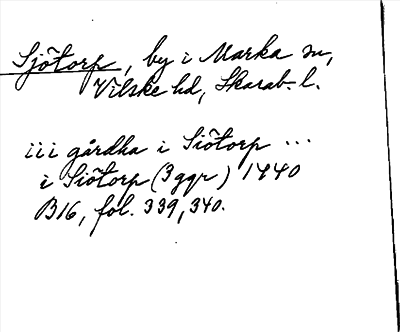 Sjötorp, by i Marka sn,
Vilske hd, Skarab. l.
iii gårdha i Siötorp ...
i Siötorp (3 ggr) 1440
B16, fol. 339, 340.